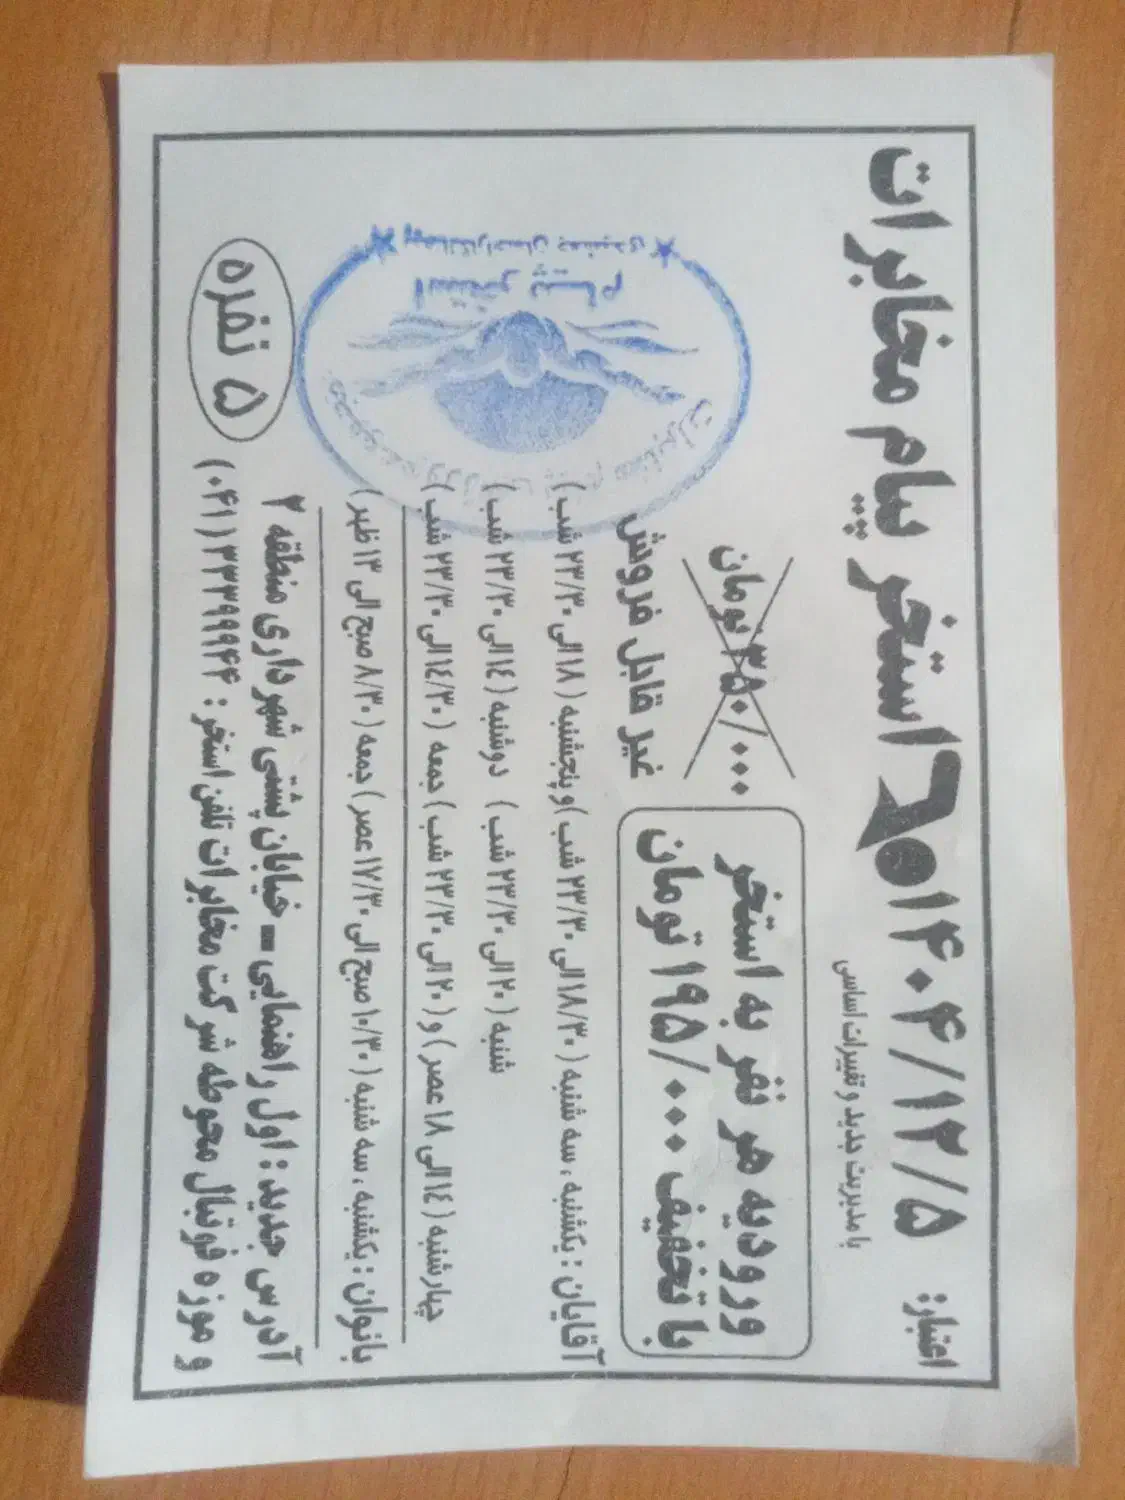 استخر پیام مخابرات
اعتبار: ۱۴۰۴/۱۲/۵
با مدیریت جدید و تغییرات اساسی
ورودیه هر نفر به استخر
با تخفیف ۱۹۵/۰۰۰ تومان
۳۵۰/۰۰۰ تومان
غیر قابل فروش
آقایان : یکشنبه ، سه شنبه (۱۸/۳۰ الی ۲۳/۳۰ شب) و پنجشنبه (۱۸ الی ۲۳/۳۰ شب)
شنبه (۲۰ الی ۲۳/۳۰ شب) دوشنبه (۱٤ الی ۲۳/۳۰ شب)
چهارشنبه (۱٤ الی ۱۸ عصر) و (۲۰ الی ۲۳/۳۰ شب) جمعه (۱٤/۳۰ الی ۲۳/۳۰ شب)
بانوان : یکشنبه ، سه شنبه (۱۰/۳۰ صبح الی ۱۷/۳۰ عصر) جمعه (۸/۳۰ صبح الی ۱۳ ظهر)
آدرس جدید : اول راهنمایی - خیابان پشتی شهرداری منطقه ۲
و موزه فوتبال محوطه شرکت مخابرات تلفن استخر : ۳۳۳۹۹۹۴۴ (۰۴۱)
۵ نفره
استخر پیام